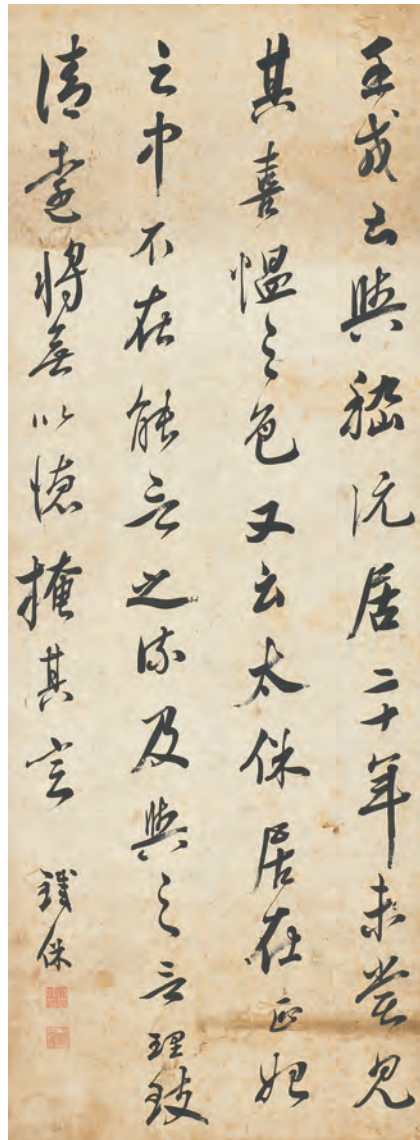 王戎云與嵇沅居二十年未嘗見
其喜慍之色又云太保居在正始
之中不在能言之流及與之言理致
清遠將無以德掩其言
鐵保